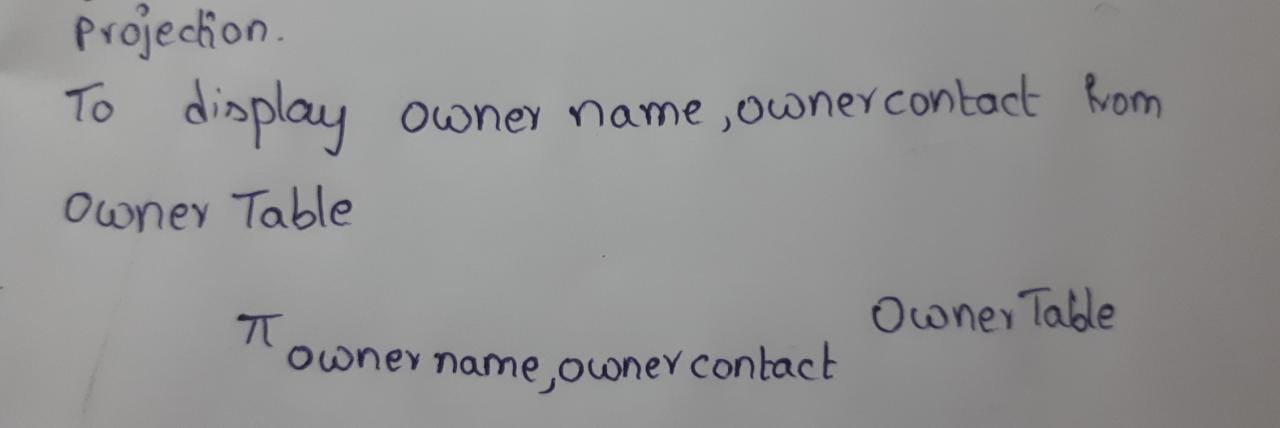 Projection.
To display owner name, ownercontact from
Owner Table
π owner name, owner contact Owner Table